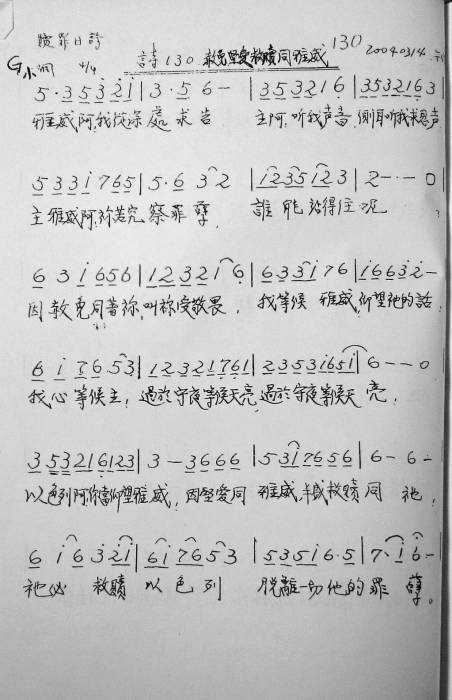 贖罪日詩
詩130 赦免堅愛救贖同雅威 130 20040314
G小調 4/4
5·35321|3·56-|353216|3532163
雅威阿,我從深處求告 主阿,听我声音,側耳听我求恩声
5331765|5·632|1235123|2--0
主雅威阿,祢若究察罪孽 誰能站得住呢
6316656|1232176|6331 76|16632-
因赦免同著祢,叫祢受敬畏, 我等候雅威,仰望祂的話,
6176553|12321761|23531651|6--0
我心等候主,過於守夜等候天亮,過於守夜等候天亮,
353216123|3-3666|5317656|6-6-
以色列阿你當仰望雅威,因堅愛同雅威,豐盛救贖同祂,
616321|617653|53516·5|7·16-
祂必救贖以色列 脫離一切他的罪孽。